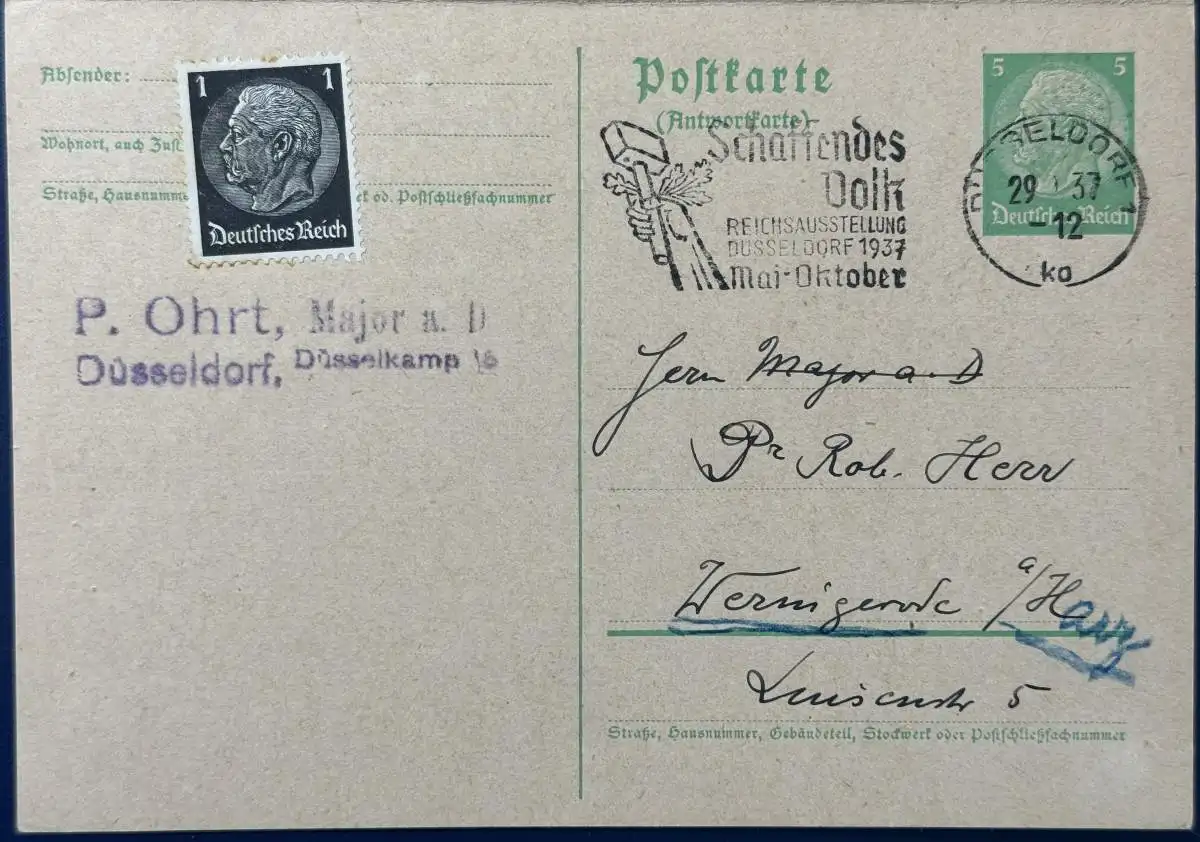 Absender:
Wohnort, auch Zust
Straße, Hausnumme
k od. Postschließfachnummer
1 1
Deutsches Reich
P. Ohrt, Major a. D
Düsseldorf, Düsselkamp
Postkarte
(Antwortkarte)
Schaffendes
Volk
REICHSAUSSTELLUNG
DÜSSELDORF 1937
Mai-Oktober
5 5
Deutsches Reich
DÜSSELDORF 1
29 37
-12
ko
Herrn Major a. D
Dr Rob. Herr
Wernigerode a/Harz
Luisenstr 5
Straße, Hausnummer, Gebäudeteil, Stockwerk oder Postschließfachnummer